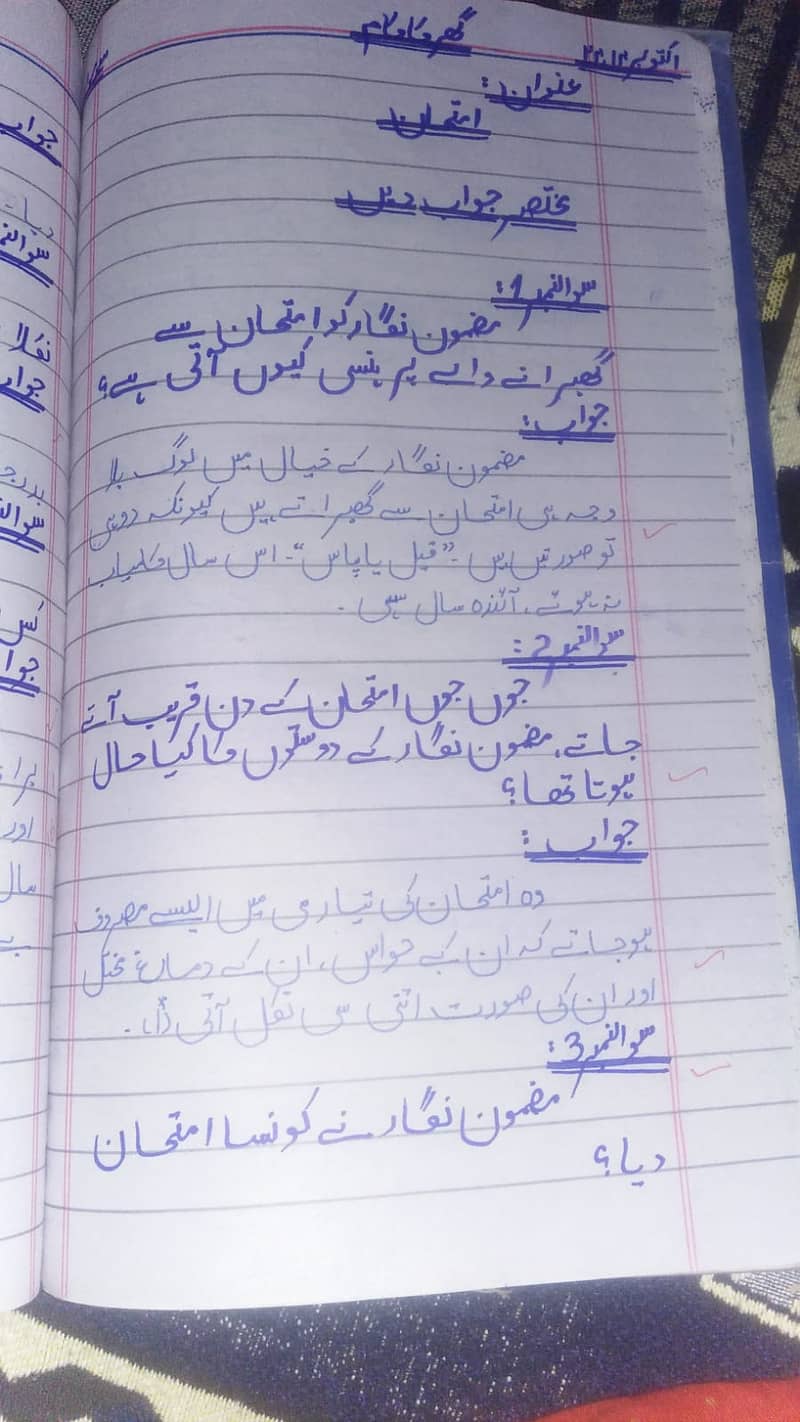 گھر کا کام
اکتوبر ۲۳.۱۲
عنوان:
امتحان
مختصر جواب دیں
سوالنمبر 1:
مضمون نگار کو امتحان سے
گھبرانے والے پر ہنسی کیوں آتی ہے؟
جواب:
مضمون نگار کے خیال میں لوگ بلا
وجہ ہی امتحان سے گھبراتے ہیں کیونکہ دو ہی
تو صورتیں ہیں۔"فیل یا پاس"۔ اس سال کامیاب
نہ ہوئے، آئندہ سال سہی۔
سوالنمبر 2:
جوں جوں امتحان کے دن قریب آتے
جاتے، مضمون نگار کے دوستوں کا کیا حال
ہوتا تھا؟
جواب:
وہ امتحان کی تیاری میں ایسے مصروف
ہو جاتے کہ ان کے حواس، ان کے دماغ مختل
اور ان کی صورت اتنی سی نکل آتی
سوالنمبر 3:
مضمون نگار نے کونسا امتحان
دیا؟
جواب
سوالنمبر
جواب
جواب
اور
سال